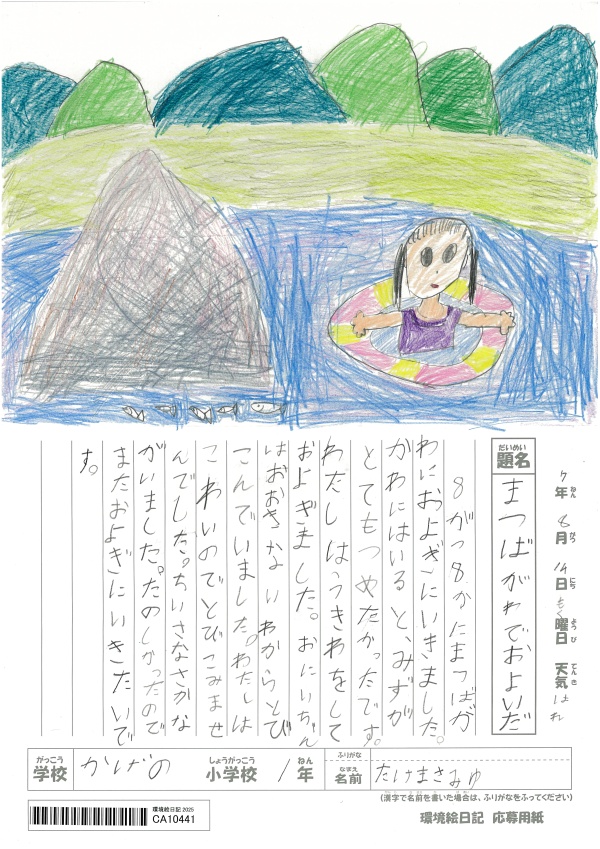 7年ねん 8月がつ 14日にち もく曜日ようび 天気てんき はれ
だいめい
題名 まつばがわでおよいだ
8がつ8かにまつばが
わにおよぎにいきました。
かわにはいると、みずが
とてもつめたかったです。
わたしはうきわをして
およぎました。おにいちゃん
はおおきないわからとび
こんでいました。わたしは
こわいのでとびこみませ
んでした。ちいさなさかな
がいました。たのしかったので
またおよぎにいきたいで
す。
がっこう しょうがっこう ねん ふりがな
学校 かげの 小学校 1年 なまえ 名前 たけまさみゆ
(漢字で名前を書いた場合は、ふりがなをふってください)
環境絵日記 2025
CA10441
環境絵日記 応募用紙